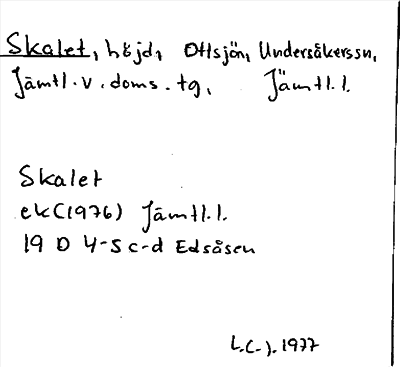 Skalet, höjd, Ottsjön, Undersåkerssn,
Jämtl. v. doms. tg, Jämtl. l.
Skalet
ek(1976) Jämtl. l.
19 D 4-5 c-d Edsåsen
L.C-J. 1977